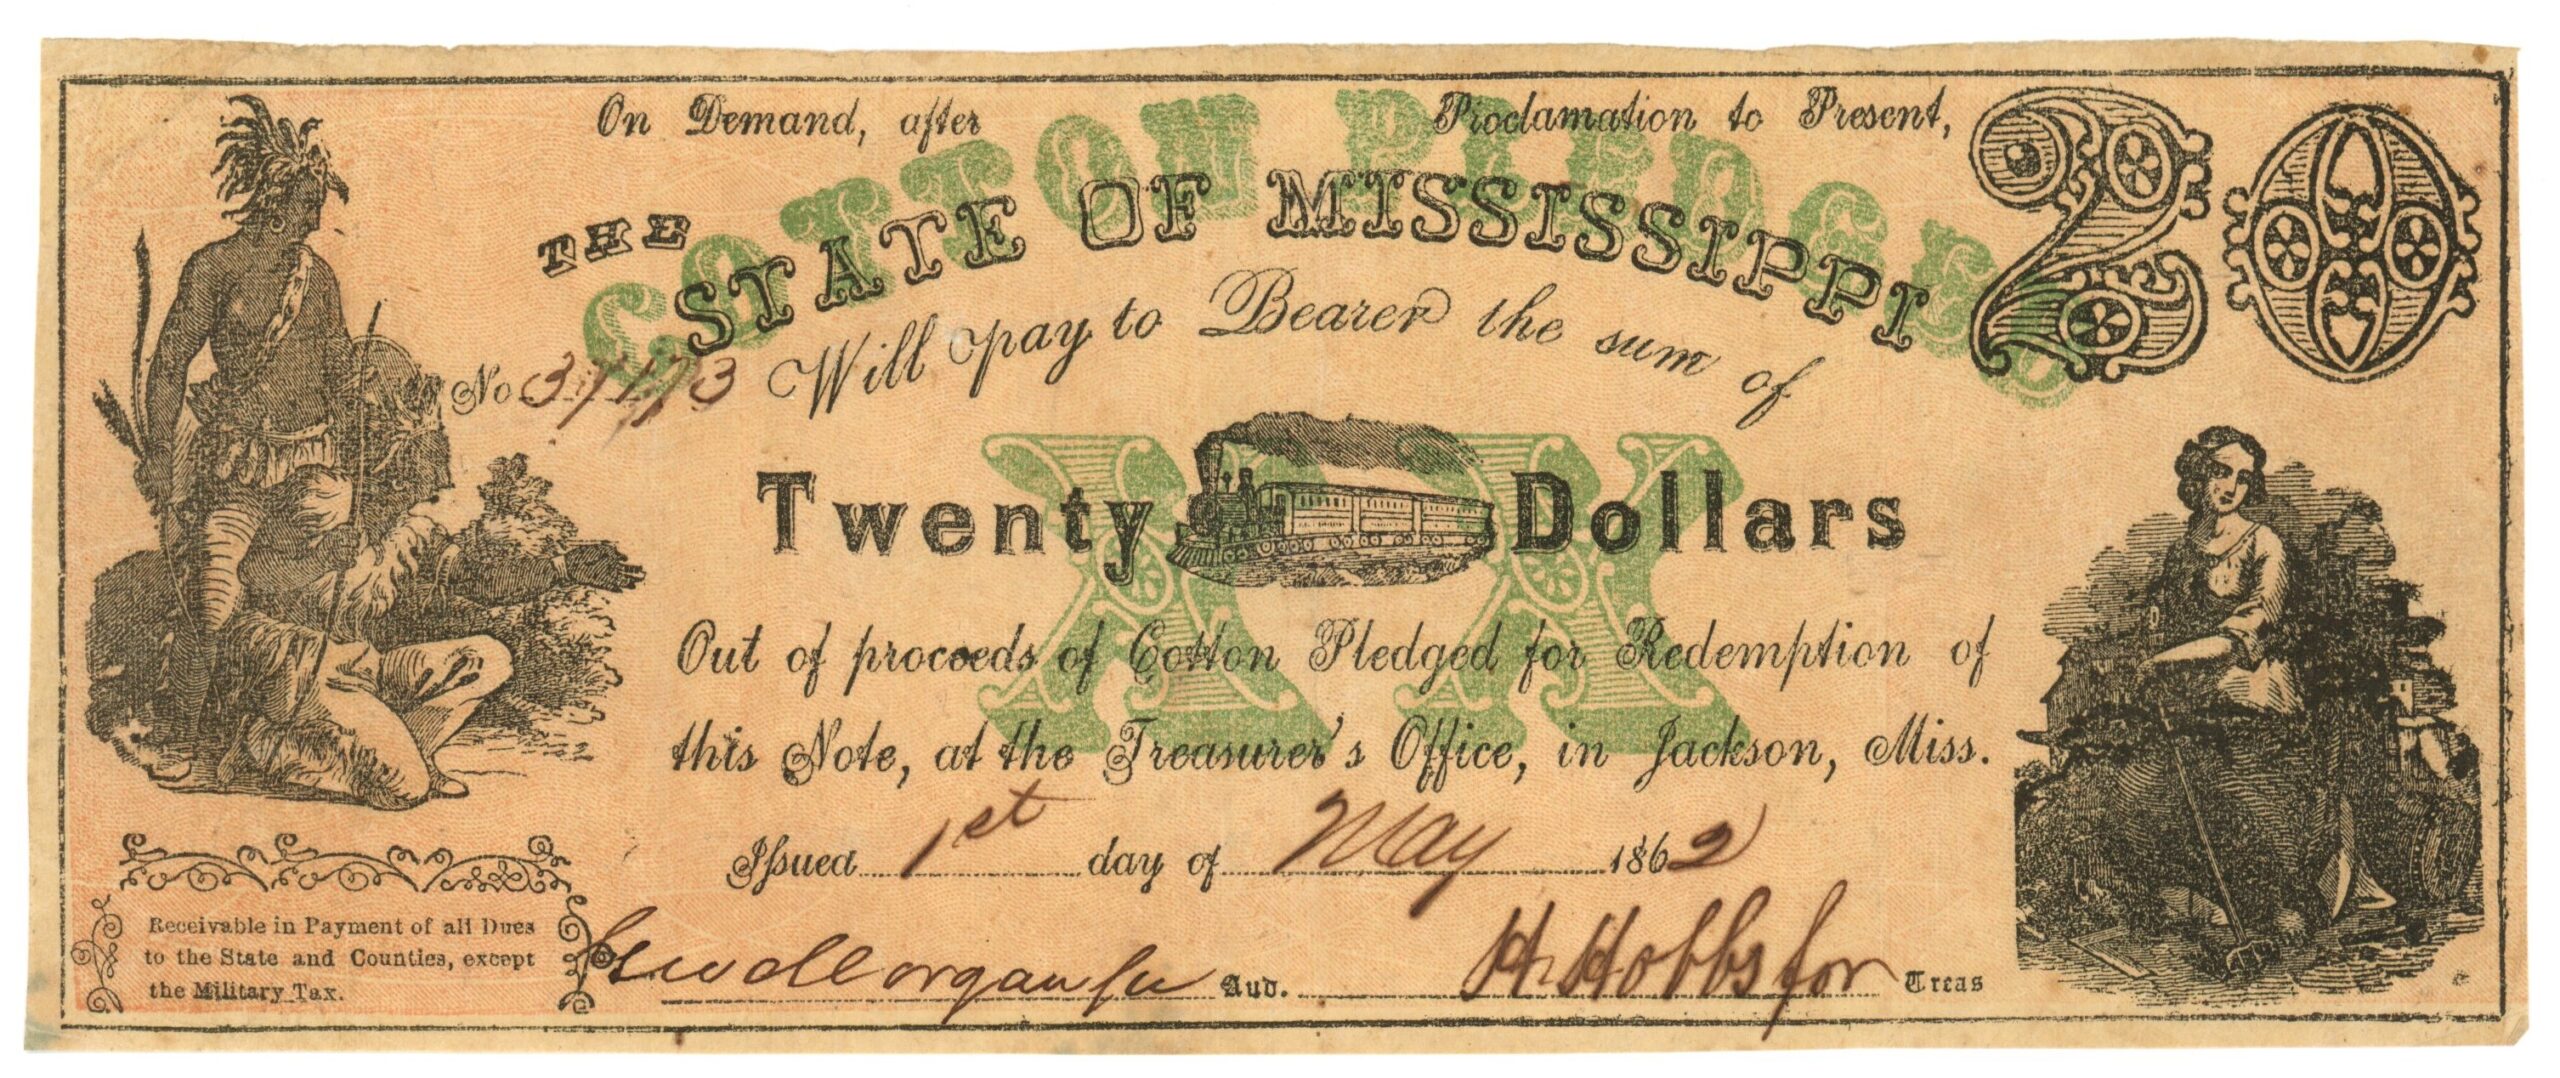 On Demand, after Proclamation to Present,
COTTON PLEDGED
THE STATE OF MISSISSIPPI
20
No 37173 Will pay to Bearer the sum of
XX
Twenty Dollars
Out of proceeds of Cotton Pledged for Redemption of
this Note, at the Treasurer's Office, in Jackson, Miss.
Issued 1st day of May 1862
Receivable in Payment of all Dues
to the State and Counties, except
the Military Tax.
Morgan for Aud. H Hobbs for Treas